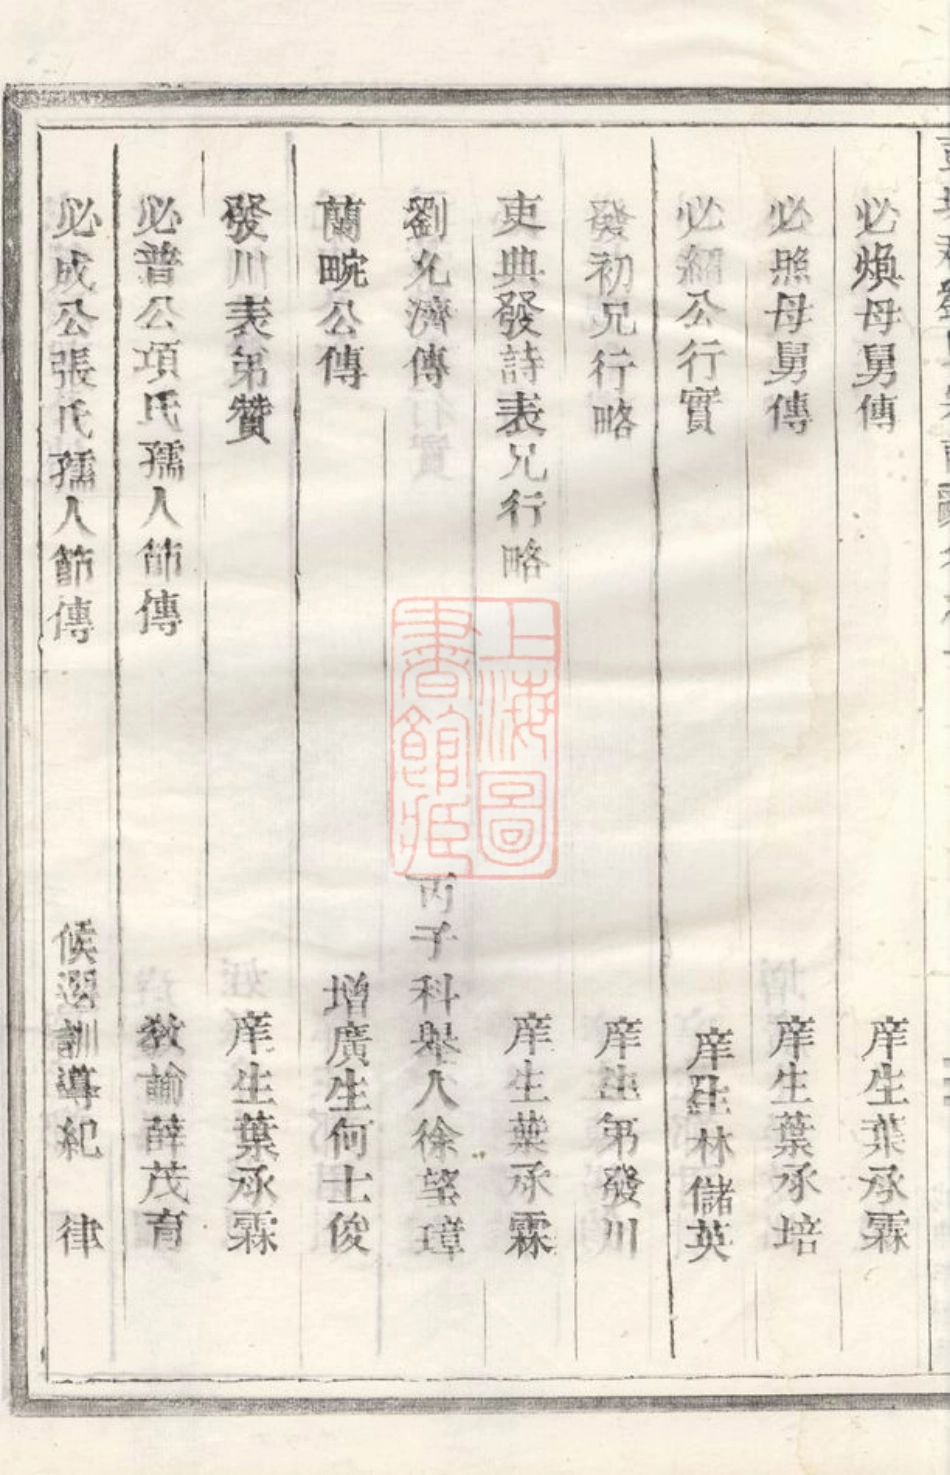 必煥母舅傳　庠生葉承霖
必照母舅傳　庠生葉承培
必紹公行實　庠生林儲英
發初兄行略　庠生弟發川
吏典發詩表兄行略　庠生葉承霖
劉允濟傳　丙子科舉人徐望璋
蘭畹公傳　增廣生何士俊
發川表弟贊　庠生葉承霖
必普公項氏孺人節傳　教諭薛茂育
必成公張氏孺人節傳　候選訓導紀　律
上海圖書館藏